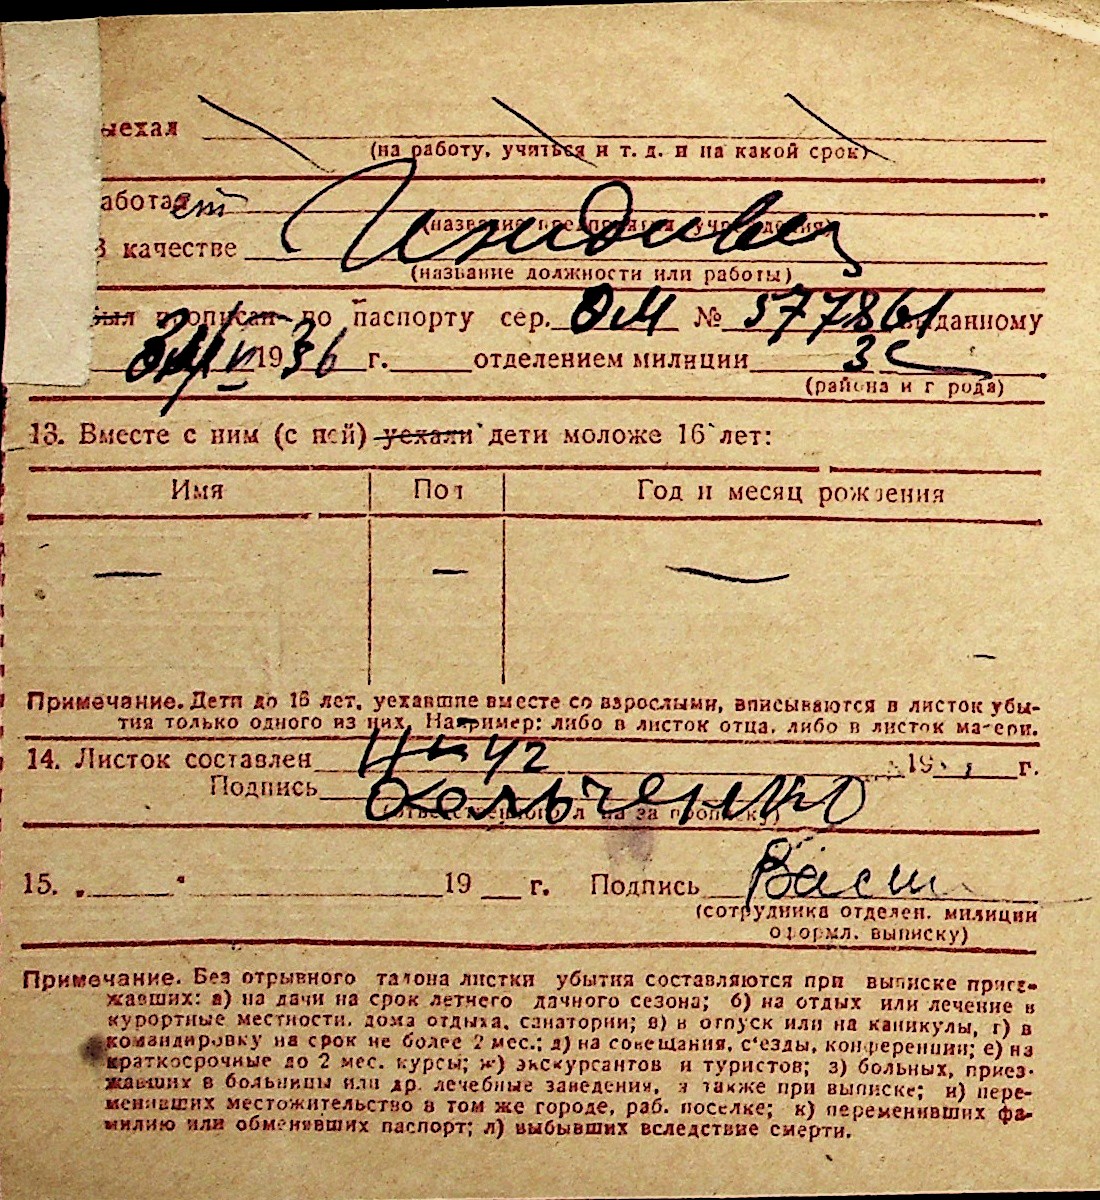 ыехал
(на работу, учиться и т. д. и на какой срок)
аботает
(название предприятия, учреждения)
В качестве Иждивен
(название должности или работы)
был прописан по паспорту сер. ОМ № 577861 выданному
1936 г. отделением милиции
(района и города)
13. Вместе с ним (с ней) уехали дети моложе 16 лет:
Имя Пол Год и месяц рождения
— — —
Примечание. Дети до 16 лет, уехавшие вместе со взрослыми, вписываются в листок убы-
тия только одного из них. Например: либо в листок отца, либо в листок матери.
14. Листок составлен 19 г.
Подпись
(ответственного л на за прописку)
15. „ “ 19 г. Подпись
(сотрудника отделен. милиции
оформл. выписку)
Примечание. Без отрывного талона листки убытия составляются при выписке приез-
жавших: а) на дачи на срок летнего дачного сезона; б) на отдых или лечение в
курортные местности, дома отдыха, санатории; в) в отпуск или на каникулы, г) в
командировку на срок не более 2 мес.; д) на совещания, съезды, конференции; е) на
краткосрочные до 2 мес. курсы; ж) экскурсантов и туристов; з) больных, приез-
жавших в больницы или др. лечебные заведения, а также при выписке; и) пере-
менивших местожительство в том же городе, раб. поселке; к) переменивших фа-
милию или обменявших паспорт; л) выбывших вследствие смерти.